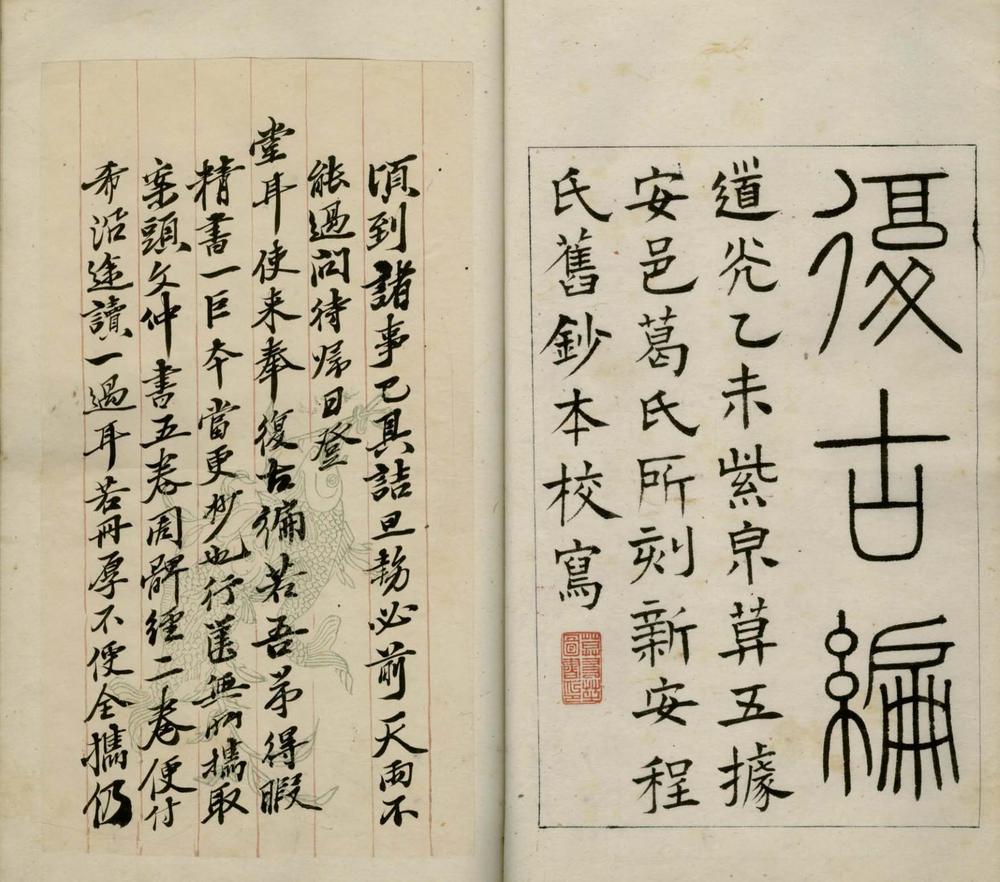 復古編
道光乙未紫泉莫五據
安邑葛氏所刻新安程
氏舊鈔本校寫
頃到諸事已具詰旦勢必前天雨不
能過問待歸日登
堂耳使来奉復古編若吾弟得暇
精書一巨本當更妙也行篋無所攜取
案頭文仲書五卷周髀經二卷便付
希沿途讀一過耳若冊厚不便全攜仍